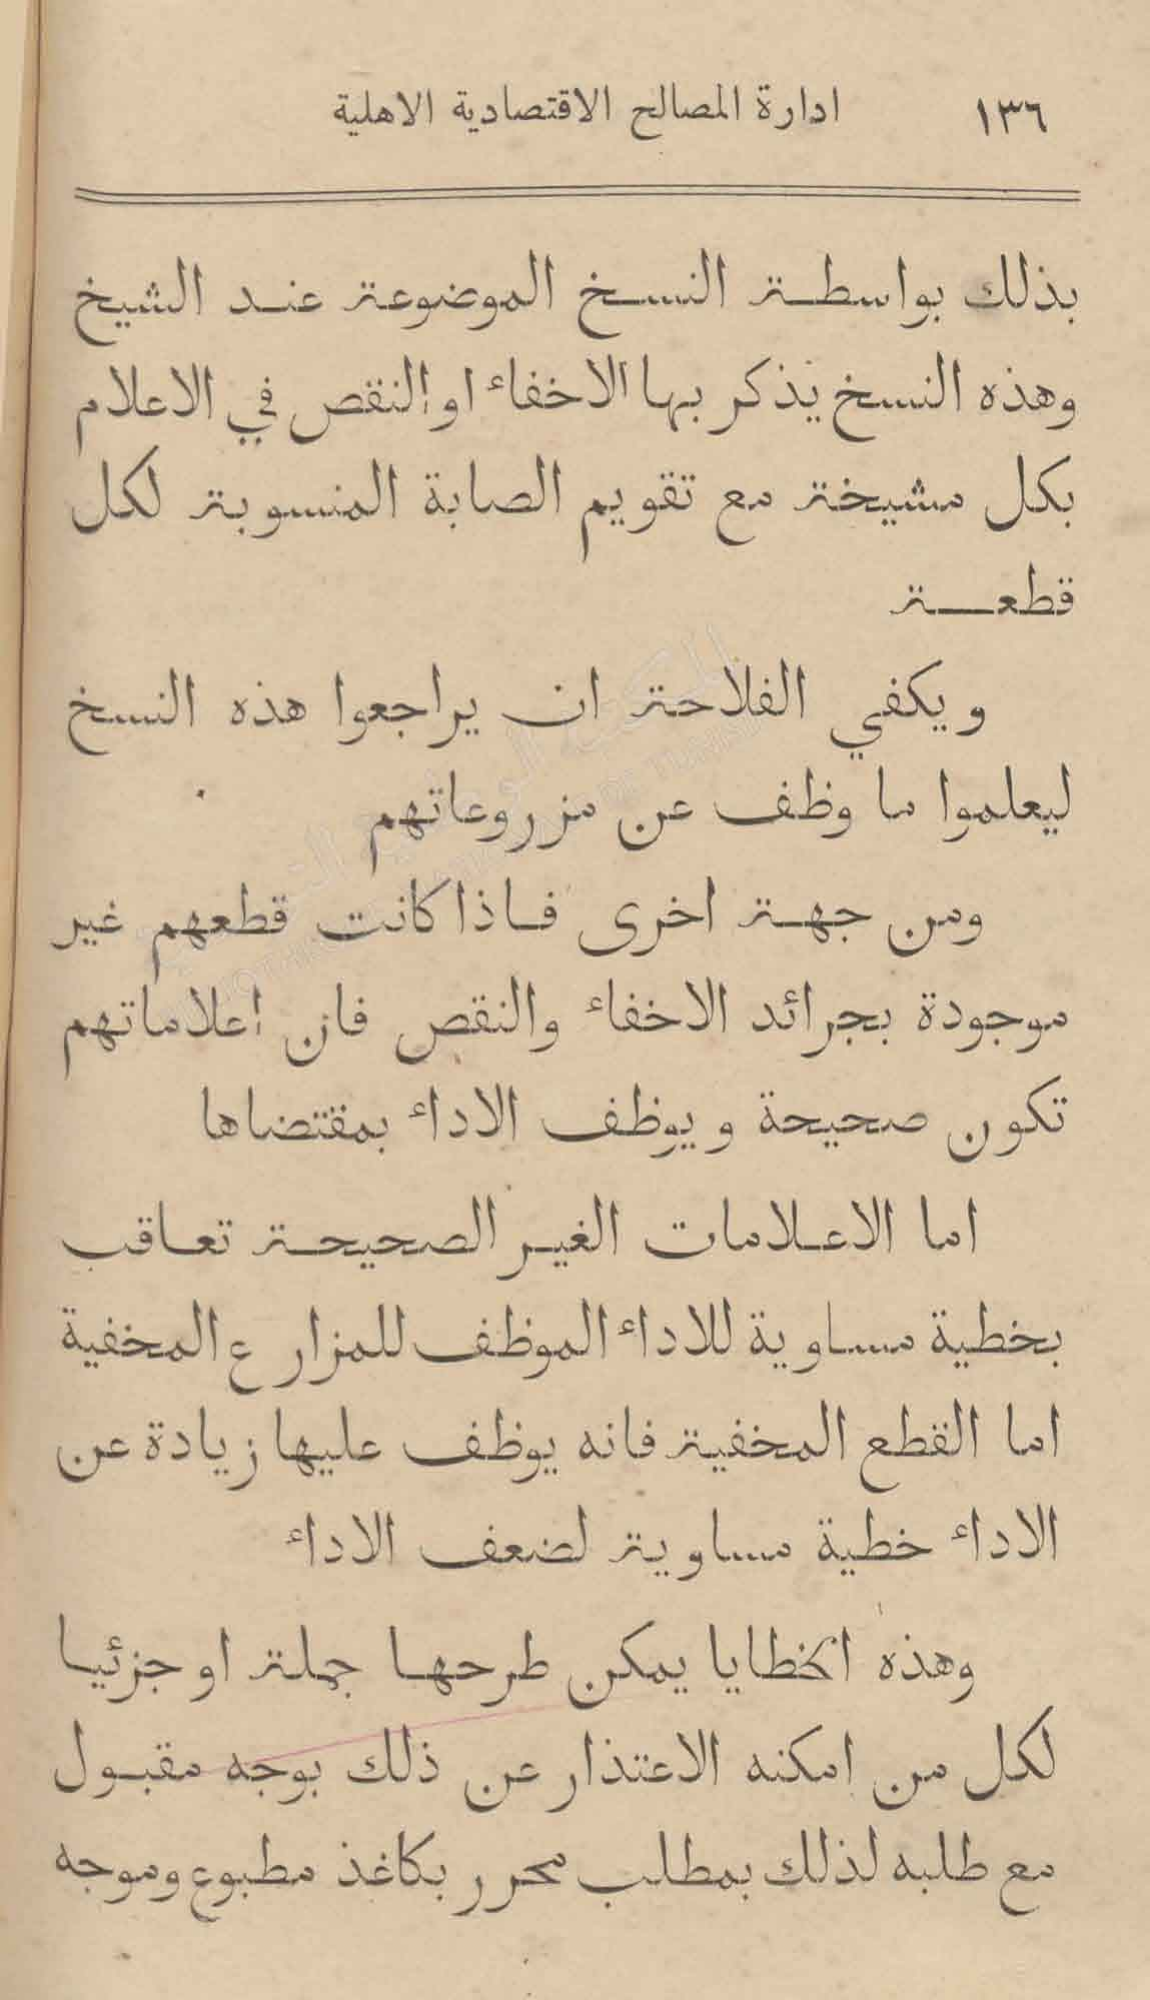 ١٣٦ ادارة المصالح الاقتصادية الاهلية
بذلك بواسطة النسخ الموضوعة عند الشيخ
وهذه النسخ يذكر بها الاخفاء او النقص في الاعلام
بكل مشيخة مع تقويم الصابة المنسوبة لكل
قطعة
ويكفي الفلاحة ان يراجعوا هذه النسخ
ليعلموا ما وظف عن مزروعاتهم
ومن جهة اخرى فاذا كانت قطعهم غير
موجودة بجرائد الاخفاء والنقص فان اعلاماتهم
تكون صحيحة ويوظف الاداء بمقتضاها
اما الاعلامات الغير الصحيحة تعاقب
بخطية مساوية للاداء الموظف للمزارع المخفية
اما القطع المخفية فانه يوظف عليها زيادة عن
الاداء خطية مساوية لضعف الاداء
وهذه الخطايا يمكن طرحها جملة او جزئيا
لكل من امكنه الاعتذار عن ذلك بوجه مقبول
مع طلبه لذلك بمطلب محرر بكاغذ مطبوع وموجه